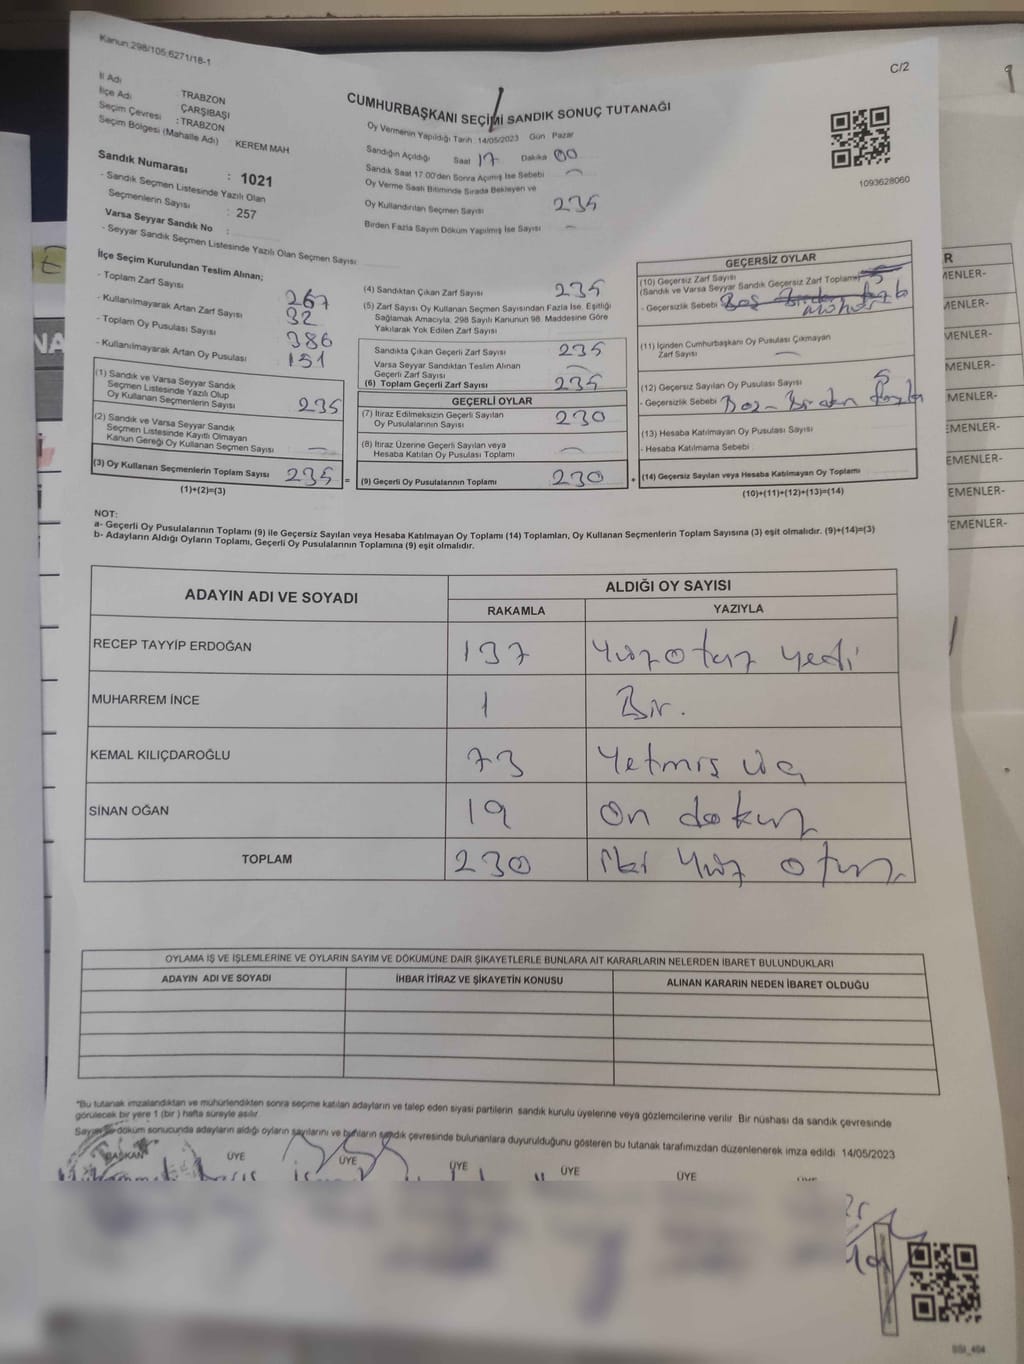 Kanun:298/105;6271/18-1
C/2
İl Adı : TRABZON
İlçe Adı : ÇARŞIBAŞI
Seçim Çevresi : TRABZON
Seçim Bölgesi (Mahalle Adı) KEREM MAH
Sandık Numarası : 1021
- Sandık Seçmen Listesinde Yazılı Olan
Seçmenlerin Sayısı : 257
Varsa Seyyar Sandık No :
- Seyyar Sandık Seçmen Listesinde Yazılı Olan Seçmen Sayısı
CUMHURBAŞKANI SEÇİMİ SANDIK SONUÇ TUTANAĞI
Oy Vermenin Yapıldığı Tarih :14/05/2023 Gün Pazar
Sandığın Açıldığı Saat 17 Dakika 00
Sandık Saat 17.00'den Sonra Açımış İse Sebebi -
Oy Verme Saati Bitiminde Sırada Bekleyen ve
Oy Kullandırılan Seçmen Sayısı 235
Birden Fazla Sayım Döküm Yapılmış İse Sayısı -
1093628060
İlçe Seçim Kurulundan Teslim Alınan;
- Toplam Zarf Sayısı 267
- Kullanılmayarak Artan Zarf Sayısı 32
- Toplam Oy Pusulası Sayısı 386
- Kullanılmayarak Artan Oy Pusulası 151
(1) Sandık ve Varsa Seyyar Sandık
Seçmen Listesinde Yazılı Olup
Oy Kullanan Seçmenlerin Sayısı 235
(2) Sandık ve Varsa Seyyar Sandık
Seçmen Listesinde Kayıtlı Olmayan
Kanun Gereği Oy Kullanan Seçmen Sayısı -
(3) Oy Kullanan Seçmenlerin Toplam Sayısı 235 =
(1)+(2)=(3)
(4) Sandıktan Çıkan Zarf Sayısı 235
(5) Zarf Sayısı Oy Kullanan Seçmen Sayısından Fazla İse, Eşitliği
Sağlamak Amacıyla, 298 Sayılı Kanunun 98. Maddesine Göre
Yakılarak Yok Edilen Zarf Sayısı
Sandıkta Çıkan Geçerli Zarf Sayısı 235
Varsa Seyyar Sandıktan Teslim Alınan
Geçerli Zarf Sayısı -
(6) Toplam Geçerli Zarf Sayısı 235
GEÇERLİ OYLAR
(7) İtiraz Edilmeksizin Geçerli Sayılan
Oy Pusulalarının Sayısı 230
(8) İtiraz Üzerine Geçerli Sayılan veya
Hesaba Katılan Oy Pusulası Toplamı -
(9) Geçerli Oy Pusulalarının Toplamı 230 +
GEÇERSİZ OYLAR
(10) Geçersiz Zarf Sayısı
(Sandık ve Varsa Seyyar Sandık Geçersiz Zarf Toplamı) 5
- Geçersizlik Sebebi Boş Birden fazla
mühür
(11) İçinden Cumhurbaşkanı Oy Pusulası Çıkmayan
Zarf Sayısı -
(12) Geçersiz Sayılan Oy Pusulası Sayısı 5
- Geçersizlik Sebebi Boş - Birden fazla
(13) Hesaba Katılmayan Oy Pusulası Sayısı
- Hesaba Katılmama Sebebi
(14) Geçersiz Sayılan veya Hesaba Katılmayan Oy Toplamı
(10)+(11)+(12)+(13)=(14)
NOT:
a- Geçerli Oy Pusulalarının Toplamı (9) ile Geçersiz Sayılan veya Hesaba Katılmayan Oy Toplamı (14) Toplamları, Oy Kullanan Seçmenlerin Toplam Sayısına (3) eşit olmalıdır. (9)+(14)=(3)
b- Adayların Aldığı Oyların Toplamı, Geçerli Oy Pusulalarının Toplamına (9) eşit olmalıdır.
ADAYIN ADI VE SOYADI
ALDIĞI OY SAYISI
RAKAMLA YAZIYLA
RECEP TAYYİP ERDOĞAN 137 Yüzotuz yedi
MUHARREM İNCE 1 Bir.
KEMAL KILIÇDAROĞLU 73 Yetmiş üç
SİNAN OĞAN 19 On dokuz
TOPLAM 230 İki Yüz otuz
OYLAMA İŞ VE İŞLEMLERİNE VE OYLARIN SAYIM VE DÖKÜMÜNE DAİR ŞİKAYETLERLE BUNLARA AİT KARARLARIN NELERDEN İBARET BULUNDUKLARI
ADAYIN ADI VE SOYADI İHBAR İTİRAZ VE ŞİKAYETİN KONUSU ALINAN KARARIN NEDEN İBARET OLDUĞU
*Bu tutanak imzalandıktan ve mühürlendikten sonra seçime katılan adayların ve talep eden siyasi partilerin sandık kurulu üyelerine veya gözlemcilerine verilir. Bir nüshası da sandık çevresinde
görülecek bir yere 1 (bir ) hafta süreyle asılır.
Sayım ve döküm sonucunda adayların aldığı oyların sayılarını ve bunların sandık çevresinde bulunanlara duyurulduğunu gösteren bu tutanak tarafımızdan düzenlenerek imza edildi. 14/05/2023
BAŞKAN ÜYE ÜYE ÜYE ÜYE ÜYE
R
MENLER-
MENLER-
MENLER-
MENLER-
MENLER-
EMENLER-
EMENLER-
EMENLER-
EMENLER-